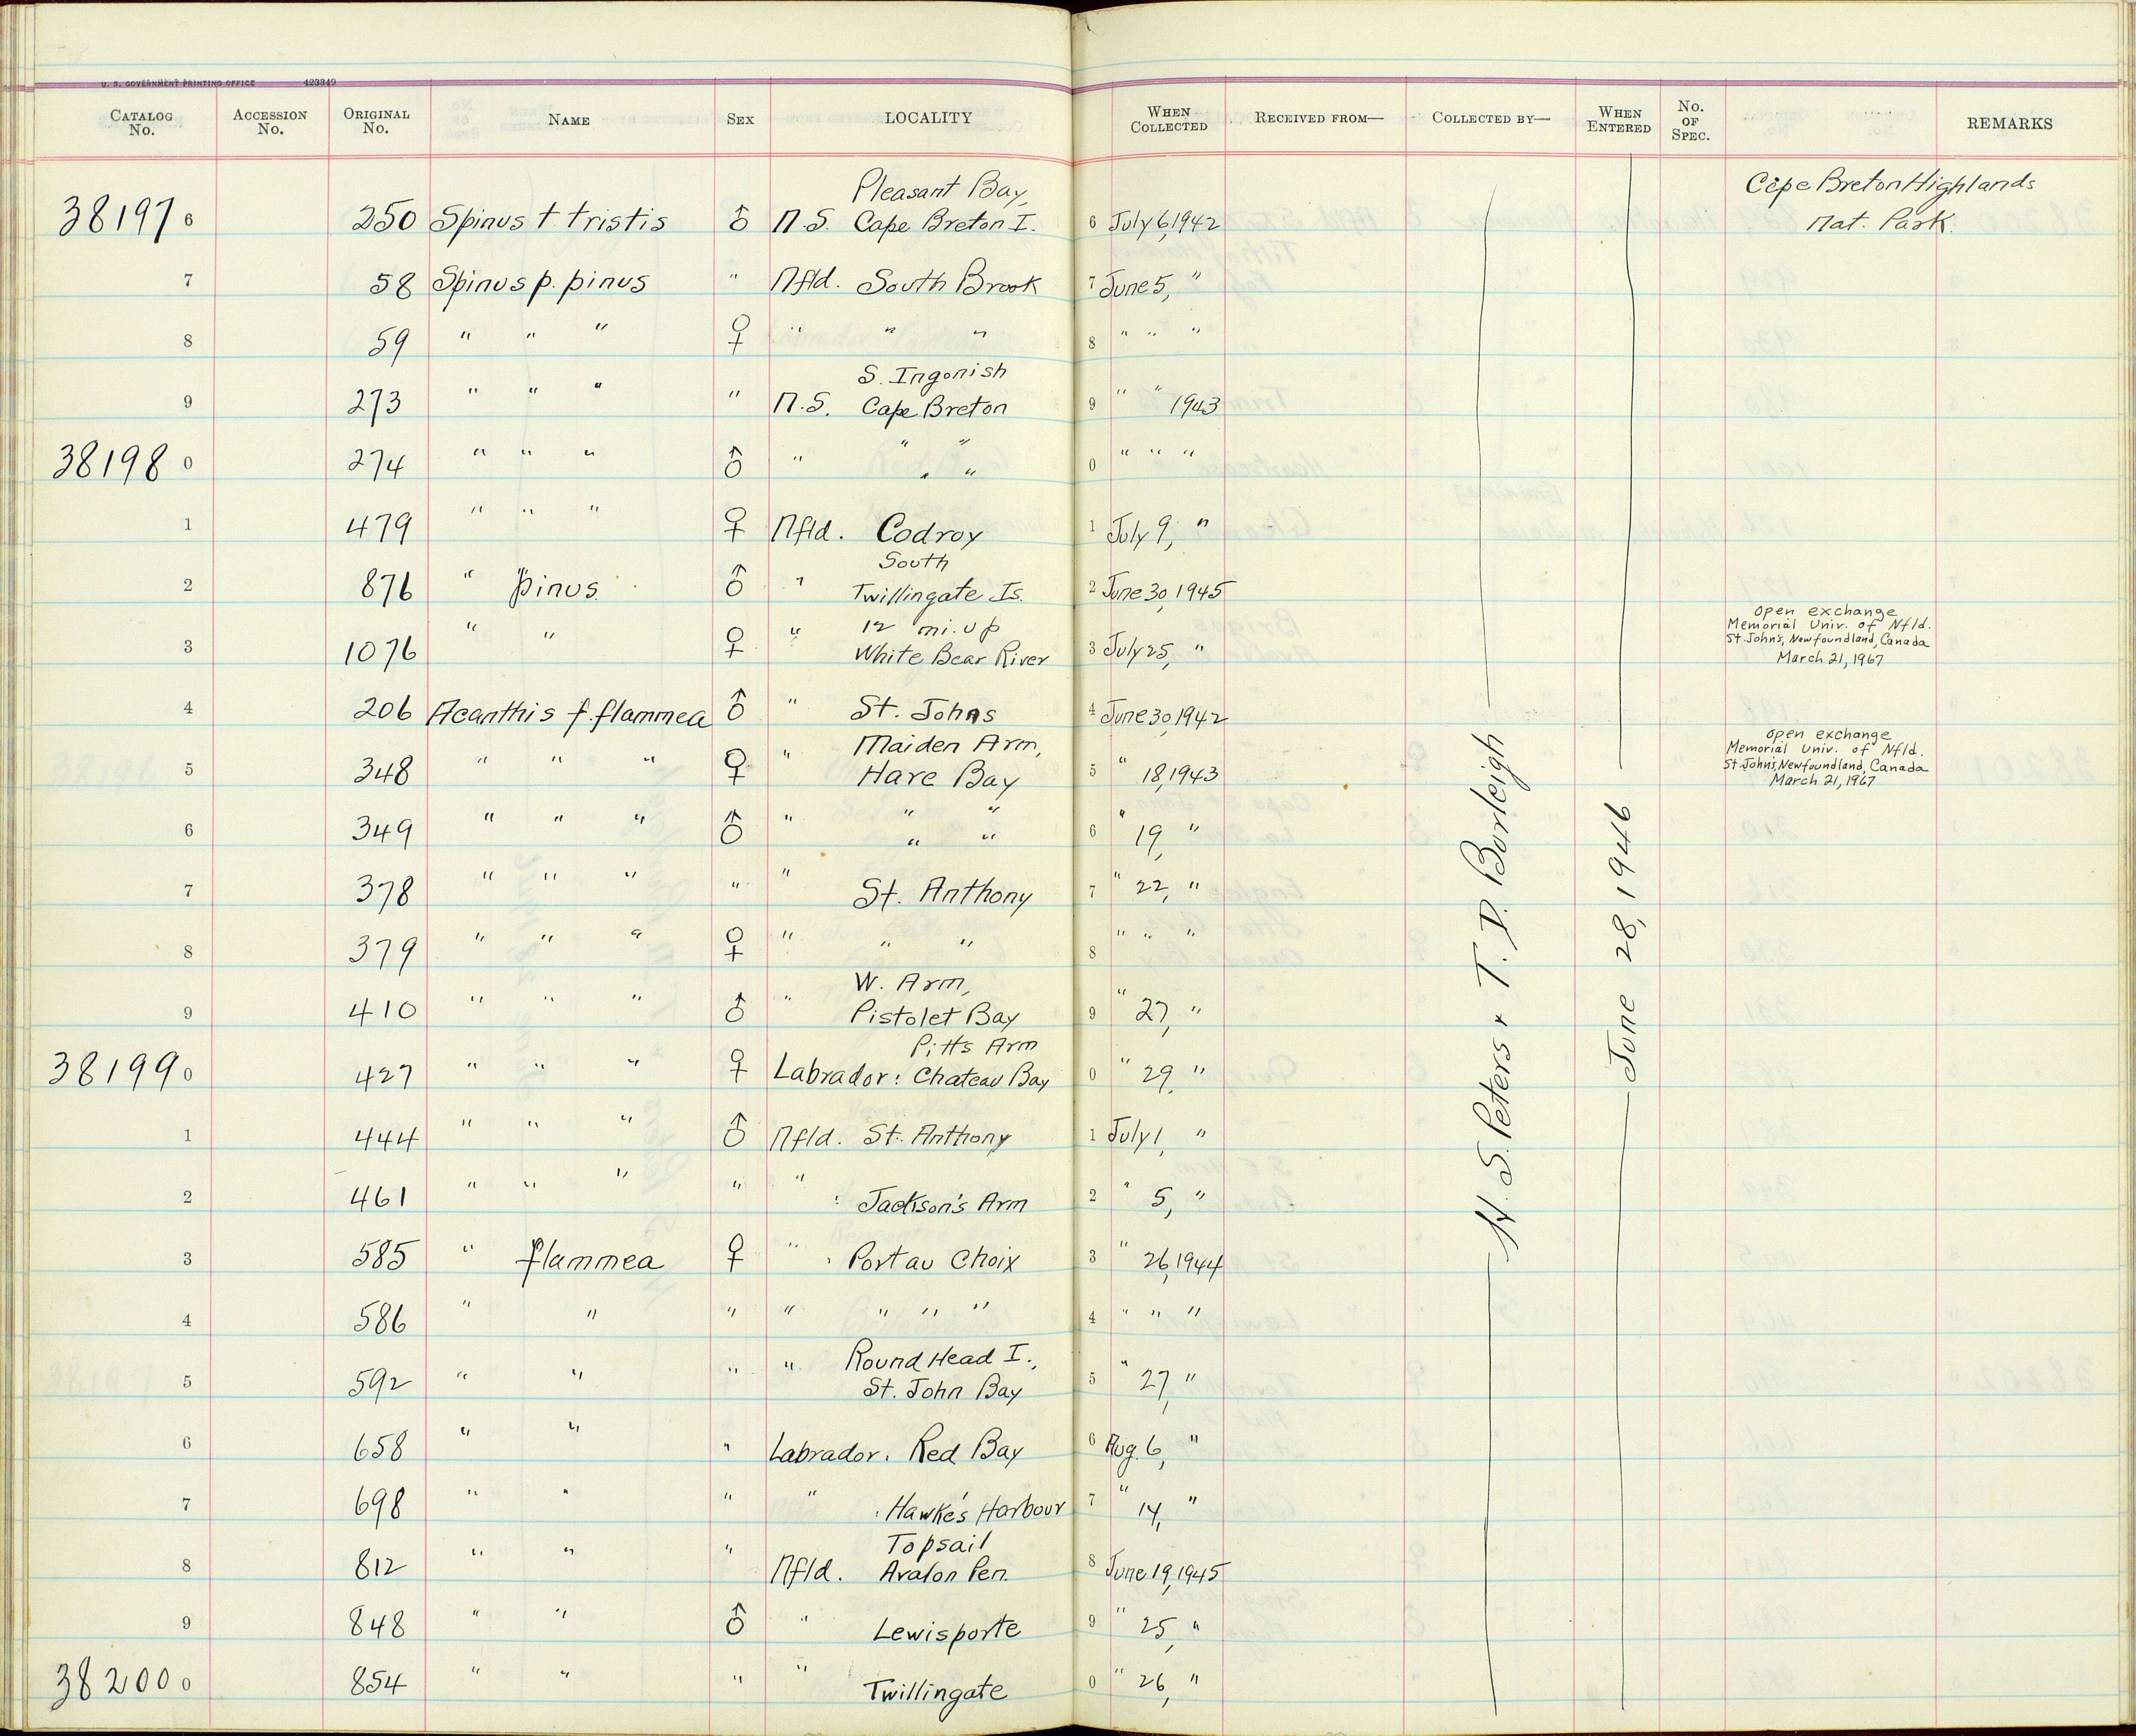 U. S. GOVERNMENT PRINTING OFFICE 423349
CATALOG No. ACCESSION No. ORIGINAL No. NAME SEX LOCALITY WHEN COLLECTED RECEIVED FROM— COLLECTED BY— WHEN ENTERED No. OF SPEC. REMARKS
Pleasant Bay, Cape Breton Highlands
38197 6 250 Spinus t. tristis ♂ N.S. Cape Breton I. 6 July 6, 1942 Nat. Park.
7 58 Spinus p. pinus " Nfld. South Brook 7 June 5, "
8 59 " " " ♀ " " " 8 " " "
S. Ingonish
9 273 " " " " N.S. Cape Breton 9 " " 1943
" "
38198 0 274 " " " ♂ " " " 0 " " "
1 479 " " " ♀ Nfld. Codroy 1 July 9, "
South
2 876 " pinus ♂ " Twillingate Is. 2 June 30, 1945
12 mi. up
3 1076 " " ♀ " White Bear River 3 July 25, "
open exchange
Memorial Univ. of Nfld.
St. John's, Newfoundland, Canada
March 21, 1967
4 206 Acanthis f. flammea ♂ " St. Johns 4 June 30, 1942
Maiden Arm,
5 348 " " " ♀ " Hare Bay 5 " 18, 1943
open exchange
Memorial Univ. of Nfld.
St. John's, Newfoundland, Canada
March 21, 1967
" "
6 349 " " " ♂ " " " 6 " 19, "
7 378 " " " " " St. Anthony 7 " 22, "
8 379 " " " ♀ " " " 8 " " "
W. Arm,
9 410 " " " ♂ " Pistolet Bay 9 " 27, "
Pitts Arm
38199 0 427 " " " ♀ Labrador: Chateau Bay 0 " 29, "
1 444 " " " ♂ Nfld. St. Anthony 1 July 1, "
2 461 " " " " " : Jackson's Arm 2 " 5, "
3 585 " flammea ♀ " Port au Choix 3 " 26, 1944
4 586 " " " " " " " 4 " " "
Round Head I.,
5 592 " " " " St. John Bay 5 " 27, "
6 658 " " " Labrador: Red Bay 6 Aug. 6, "
7 698 " " " " : Hawke's Harbour 7 " 14, "
Topsail
8 812 " " " Nfld. Avalon Pen. 8 June 19, 1945
9 848 " " ♂ " Lewisporte 9 " 25, "
38200 0 854 " " " " Twillingate 0 " 26, "
H. S. Peters & T. D. Burleigh
June 28, 1946